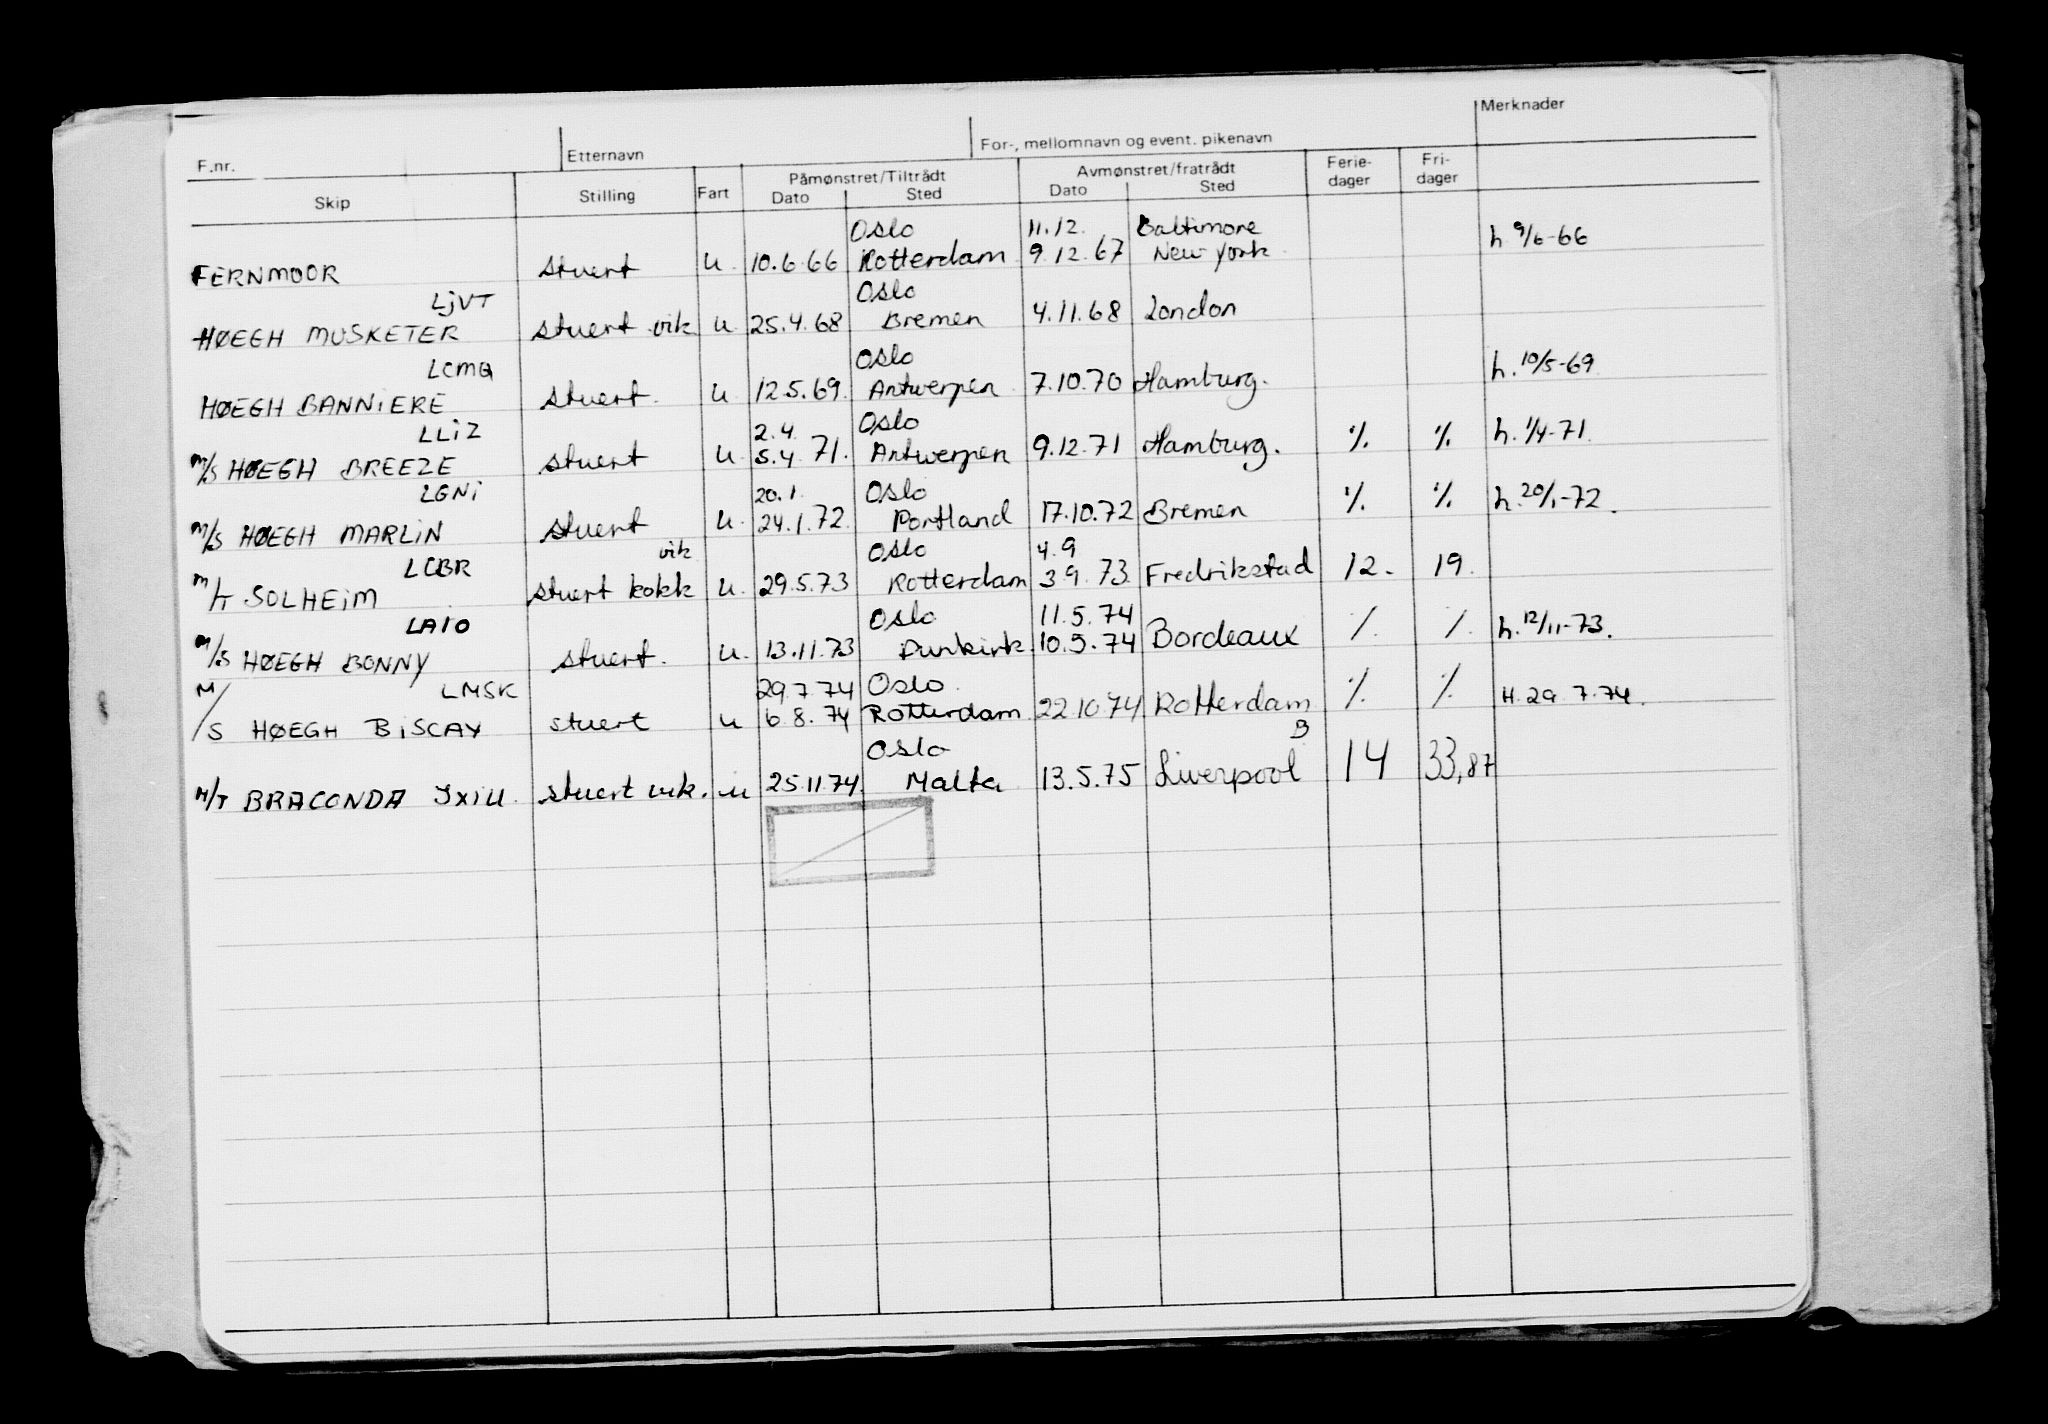 Merknader
F.nr. Etternavn For-, mellomnavn og event. pikenavn
Skip Stilling Fart Påmønstret/Tiltrådt Avmønstret/fratrådt Ferie- Fri-
Dato Sted Dato Sted dager dager
Oslo 11.12. Baltimore
FERNMOOR stuert u. 10.6.66 Rotterdam 9.12.67 New York h 9/6-66
LJVT Oslo
HØEGH MUSKETER stuert vik u 25.4.68 Bremen 4.11.68 London
LCMQ Oslo
HØEGH BANNIERE stuert. u. 12.5.69. Antwerpen 7.10.70 Hamburg. h. 10/5-69
LLIZ 2.4. Oslo
M/S HØEGH BREEZE stuert u. 5.4 71. Antwerpen 9.12.71 Hamburg. % % h. 1/4-71.
LGNI 20.1. Oslo
M/S HØEGH MARLIN stuert u. 24.1.72. Portland 17.10.72 Bremen % % h. 20/1-72.
LCBR vik Oslo 4.9
M/T SOLHEIM stuert kokk u. 29.5.73 Rotterdam 3.9.73. Fredrikstad 12. 19.
LAIO Oslo 11.5.74
M/S HØEGH BONNY stuert. u. 13.11.73 Dunkirk 10.5.74 Bordeaux % % h. 12/11-73.
LMSK 29.7.74 Oslo
M/S HØEGH BISCAY stuert u 6.8.74 Rotterdam 22.10.74 Rotterdam % % H. 29.7.74.
Oslo B
M/T BRACONDA JXIU. stuert vik. u 25.11.74. Malta 13.5.75 Liverpool 14 33,87